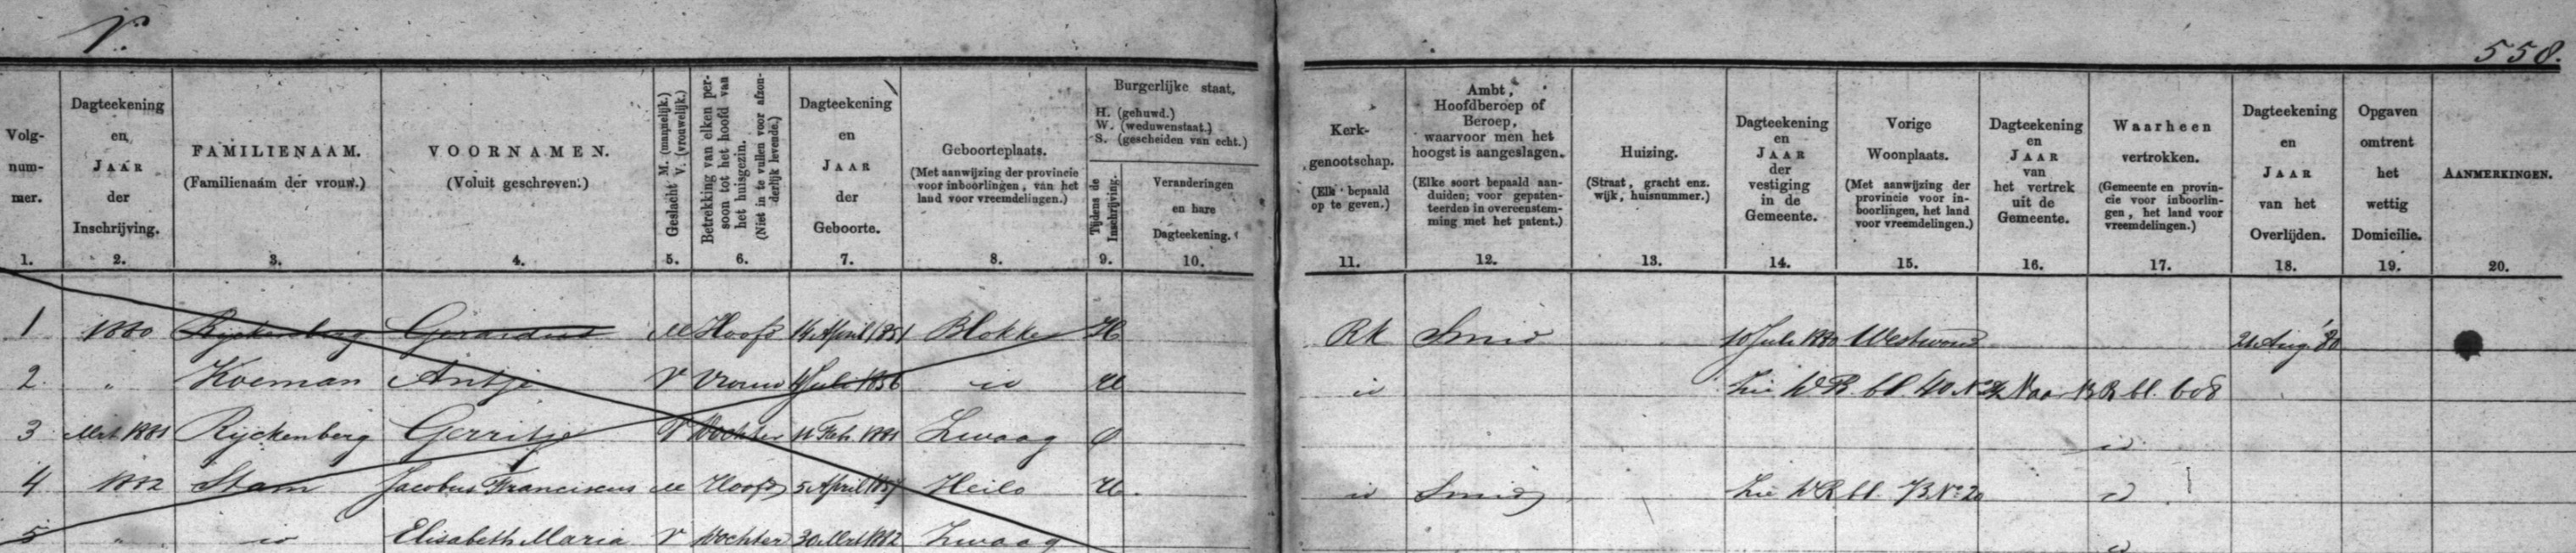 V.
558.
Volg-
num-
mer.
1.
Dagteekening
en
JAAR
der
Inschrijving.
2.
FAMILIENAAM.
(Familienaam der vrouw.)
3.
VOORNAMEN.
(Voluit geschreven.)
4.
Geslacht M. (mannelijk.)
V. (vrouwelijk.)
5.
Betrekking van elken per-
soon tot het hoofd van
het huisgezin.
(Niet in te vullen voor afzon-
derlijk levende.)
6.
Dagteekening
en
JAAR
der
Geboorte.
7.
Geboorteplaats.
(Met aanwijzing der provincie
voor inboorlingen, van het
land voor vreemdelingen.)
8.
Burgerlijke staat.
H. (gehuwd.)
W. (weduwenstaat.)
S. (gescheiden van echt.)
Tijdens de
Inschrijving.
9.
Veranderingen
en hare
Dagteekening.
10.
Kerk-
genootschap.
(Elk bepaald
op te geven.)
11.
Ambt,
Hoofdberoep of
Beroep,
waarvoor men het
hoogst is aangeslagen.
(Elke soort bepaald aan-
duiden; voor gepaten-
teerden in overeenstem-
ming met het patent.)
12.
Huizing.
(Straat, gracht enz.
wijk, huisnummer.)
13.
Dagteekening
en
JAAR
der
vestiging
in de
Gemeente.
14.
Vorige
Woonplaats.
(Met aanwijzing der
provincie voor in-
boorlingen, het land
voor vreemdelingen.)
15.
Dagteekening
en
JAAR
van
het vertrek
uit de
Gemeente.
16.
Waarheen
vertrokken.
(Gemeente en provin-
cie voor inboorlin-
gen, het land voor
vreemdelingen.)
17.
Dagteekening
en
JAAR
van het
Overlijden.
18.
Opgaven
omtrent
het
wettig
Domicilie.
19.
AANMERKINGEN.
20.
1 1880 Ryckenberg Gerardus M Hoofd 14 April 1851 Blokker H RK Smid 10 Juli 1880 Westwoud 21 Aug '80
2. " Koeman Antje V Vrouw Juli 1856 id H id Zie WR bl 40 Naar NR bl. 608
3 Mrt 1881 Ryckenberg Gerritje V Dochter 11 Feb. 1881 Zwaag O id
4 1882 Stam Jacobus Franciscus M Hoofd 5 April 1857 Heilo H. id Smid Zie WR bl. No 20 id
5 " id Elisabeth Maria V Dochter 30 Mrt 1882 Zwaag id